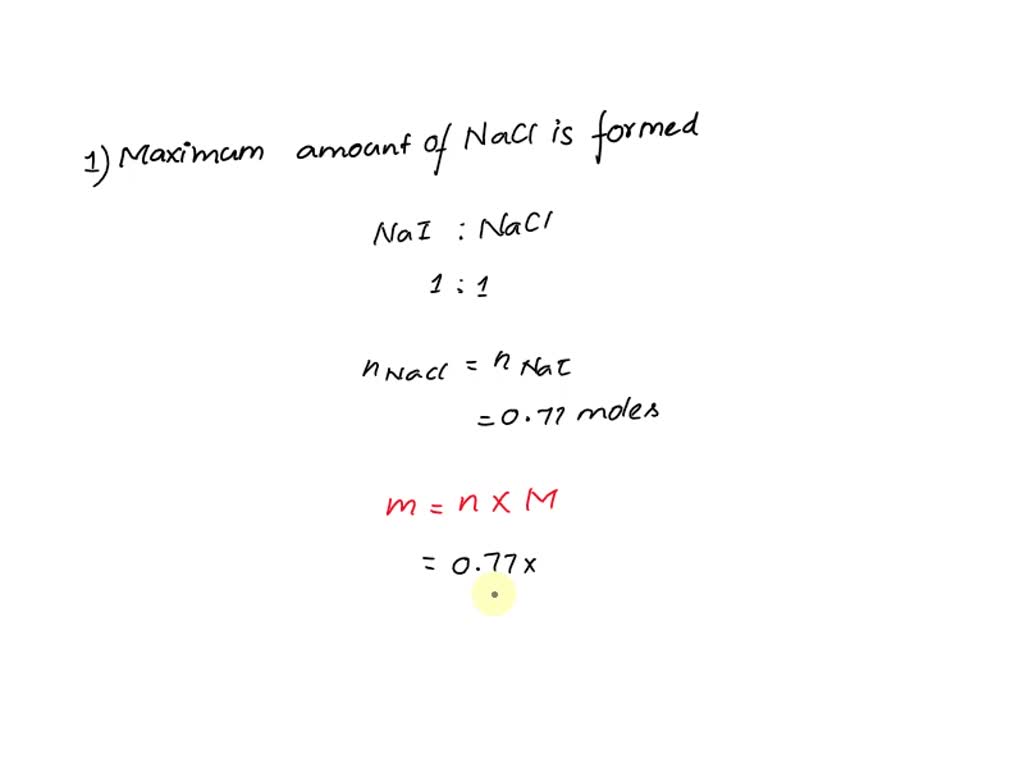 1) Maximum amount of NaCl is formed
NaI : NaCl
1 : 1
n NaCl = n NaI
= 0.77 moles
m = n x M
= 0.77 x